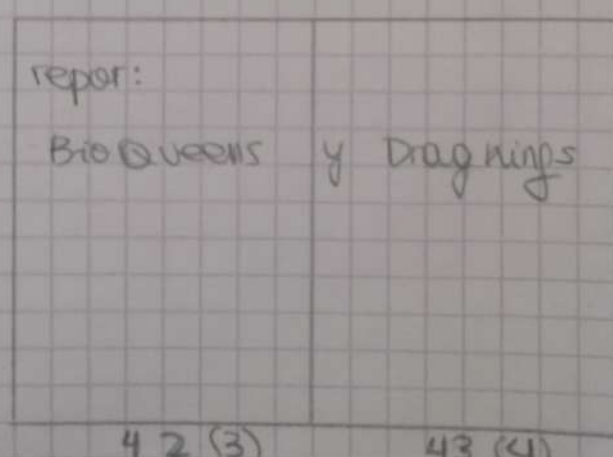 repor:
BioQueens y Dragkings
42 (3) 43 (4)